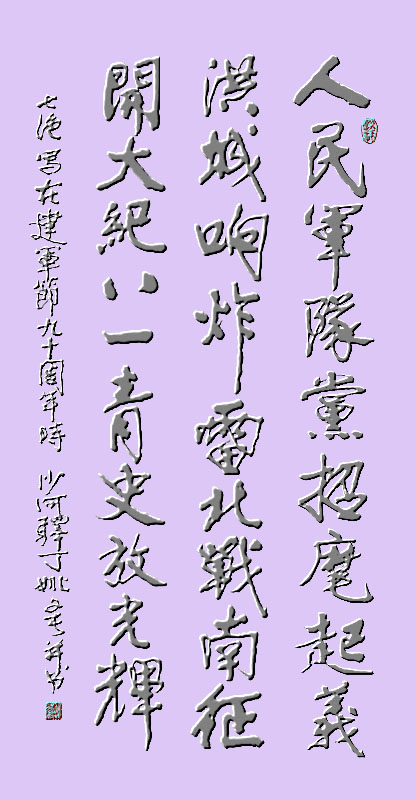 人民軍隊黨招麾起義
洪城响炸雷北戰南征
開大紀八一青史放光輝
七绝寫在建軍節九十周年時 沙河驛丁姚并书